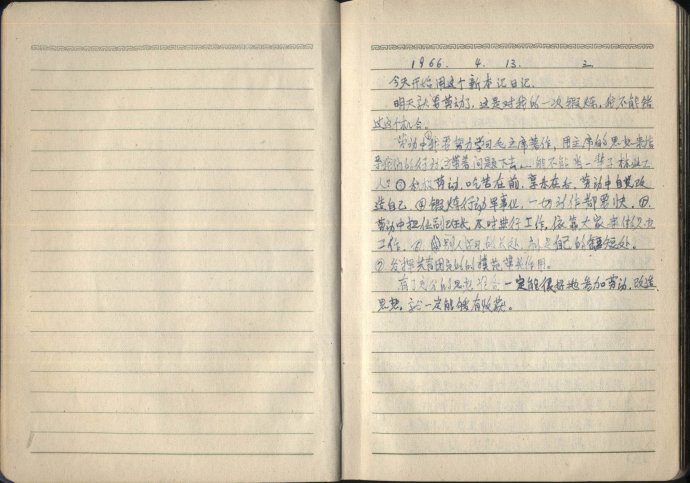 1966. 4. 13. 三
今天开始用这个新本记日记.
明天就要劳动了, 这是对我的一次锻炼, 我不能错
过这个机会.
劳动中我要努力学习毛主席著作, 用主席的思想来指
导我们的行动, 带着问题下去, 能不能当一辈子
人? ① 积极劳动, 吃苦在前, 享乐在后, 劳动中自觉改
造自己. 锻炼行动军事化, 一切动作都要快.
劳动中担任副班长, 及时进行工作, 依靠大家来作
工作. 别人的长处, 自己的短处.
发挥共青团员的模范带头作用.
有了充分的思想准备一定能很好地参加劳动, 改造
思想, 一定能够有收获.